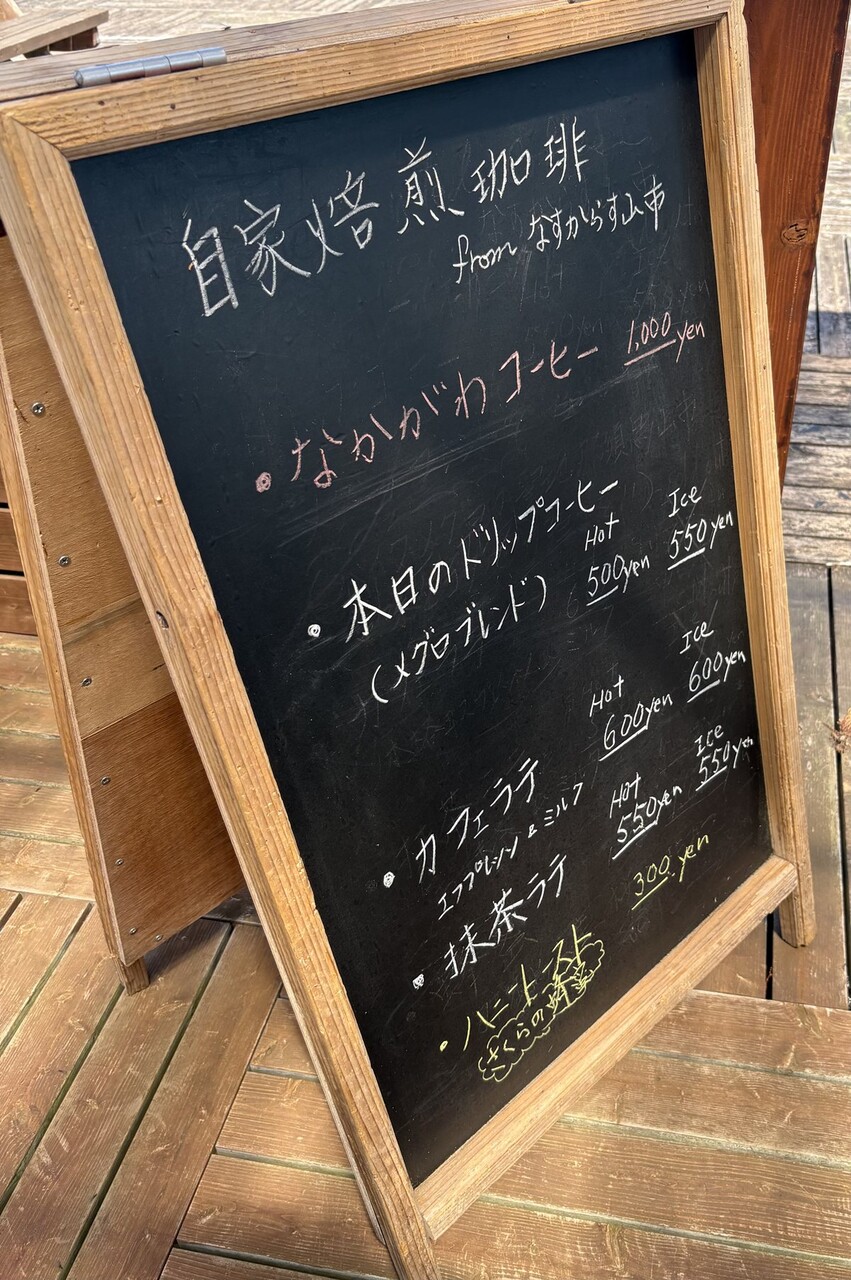 自家焙煎珈琲
from なすからす山市
・なかがわコーヒー 1,000yen
・本日のドリップコーヒー
(メグロブレンド)
Hot Ice
500yen 550yen
・カフェラテ
エスプレッソ & ミルク
Hot Ice
600yen 600yen
・抹茶ラテ
Hot Ice
550yen 550yen
・ハニートースト 300yen
さくらの